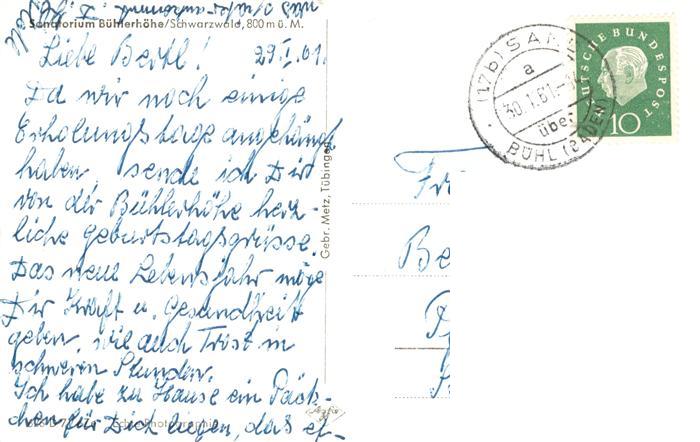 Sanatorium Bühlerhöhe/Schwarzwald, 800 m ü. M.
Liebe Bertl! 29.I.61.
Da wir noch einige
Erholungstage angehängt
haben sende ich Dir
von der Bühlerhöhe herz-
liche Geburtstagsgrüsse.
Das neue Lebensjahr möge
Dir Kraft u. Gesundheit
geben, wie auch Trost in
schweren Stunden.
Ich habe zu Hause ein Päck-
chen für Dich liegen, das
Gebr. Metz, Tübingen
(17b) SAND
a
30.1.61.
über
BÜHL (BADEN)
DEUTSCHE BUNDESPOST
10
Be